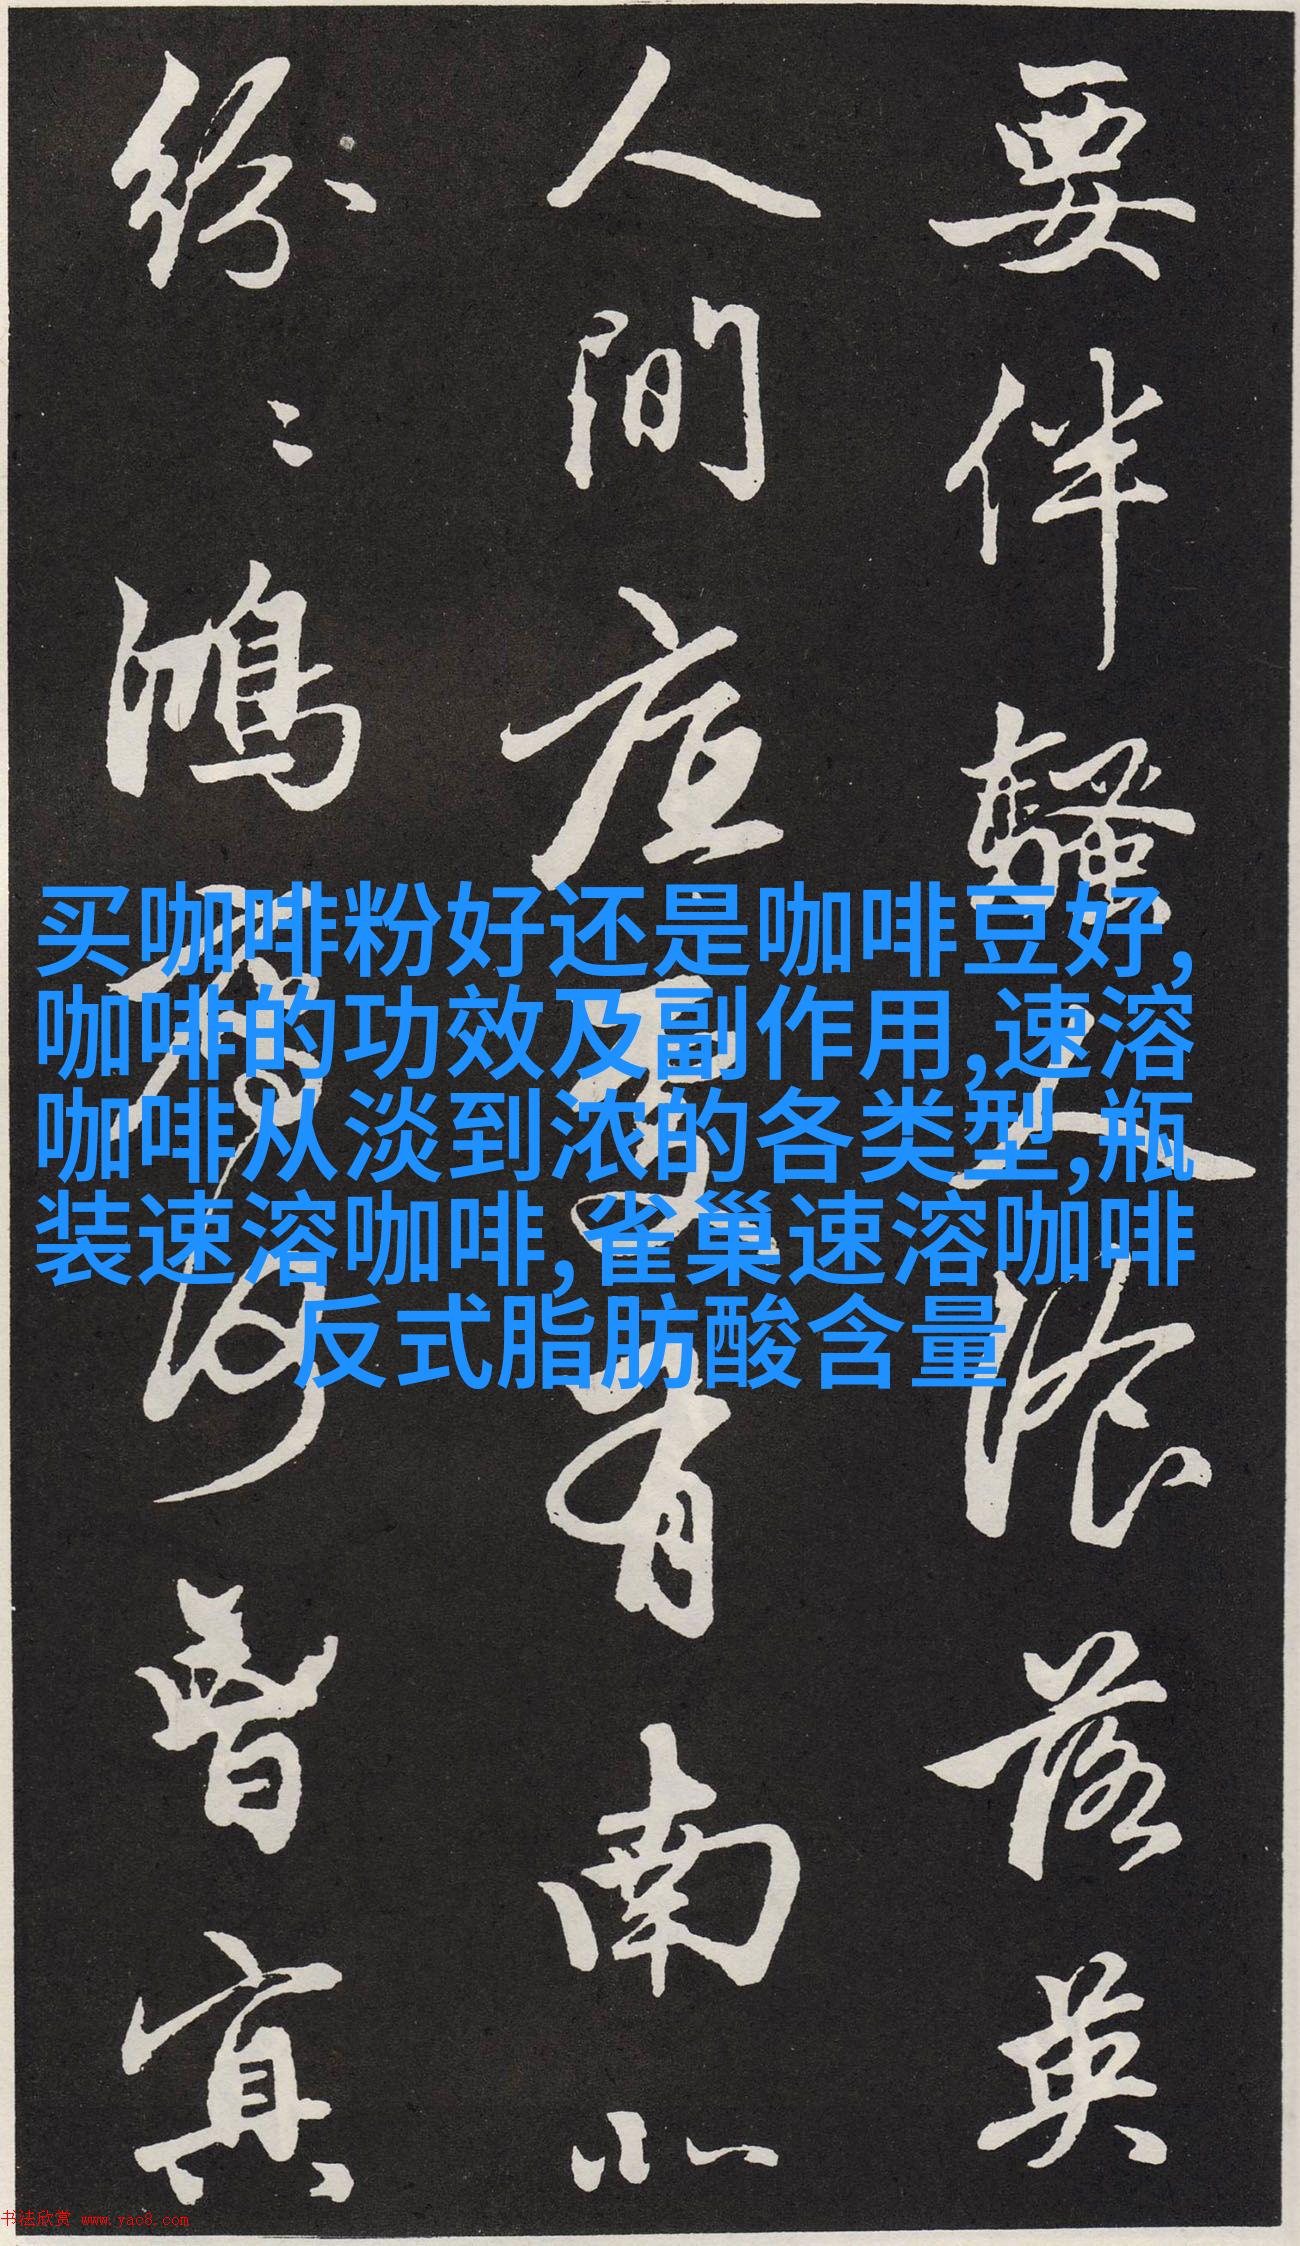 要伴騷人浪落英
人間底更有南北
紛〻鴻雁何曾冥
买咖啡粉好还是咖啡豆好,
咖啡的功效及副作用,速溶
咖啡从淡到浓的各类型,瓶
装速溶咖啡,雀巢速溶咖啡
反式脂肪酸含量
书法欣赏 www.yac8.com